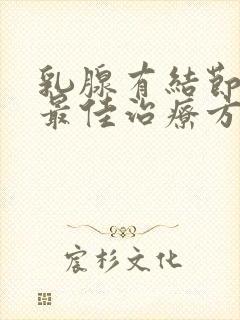 乳腺有結節
最佳治療方
宸杉文化